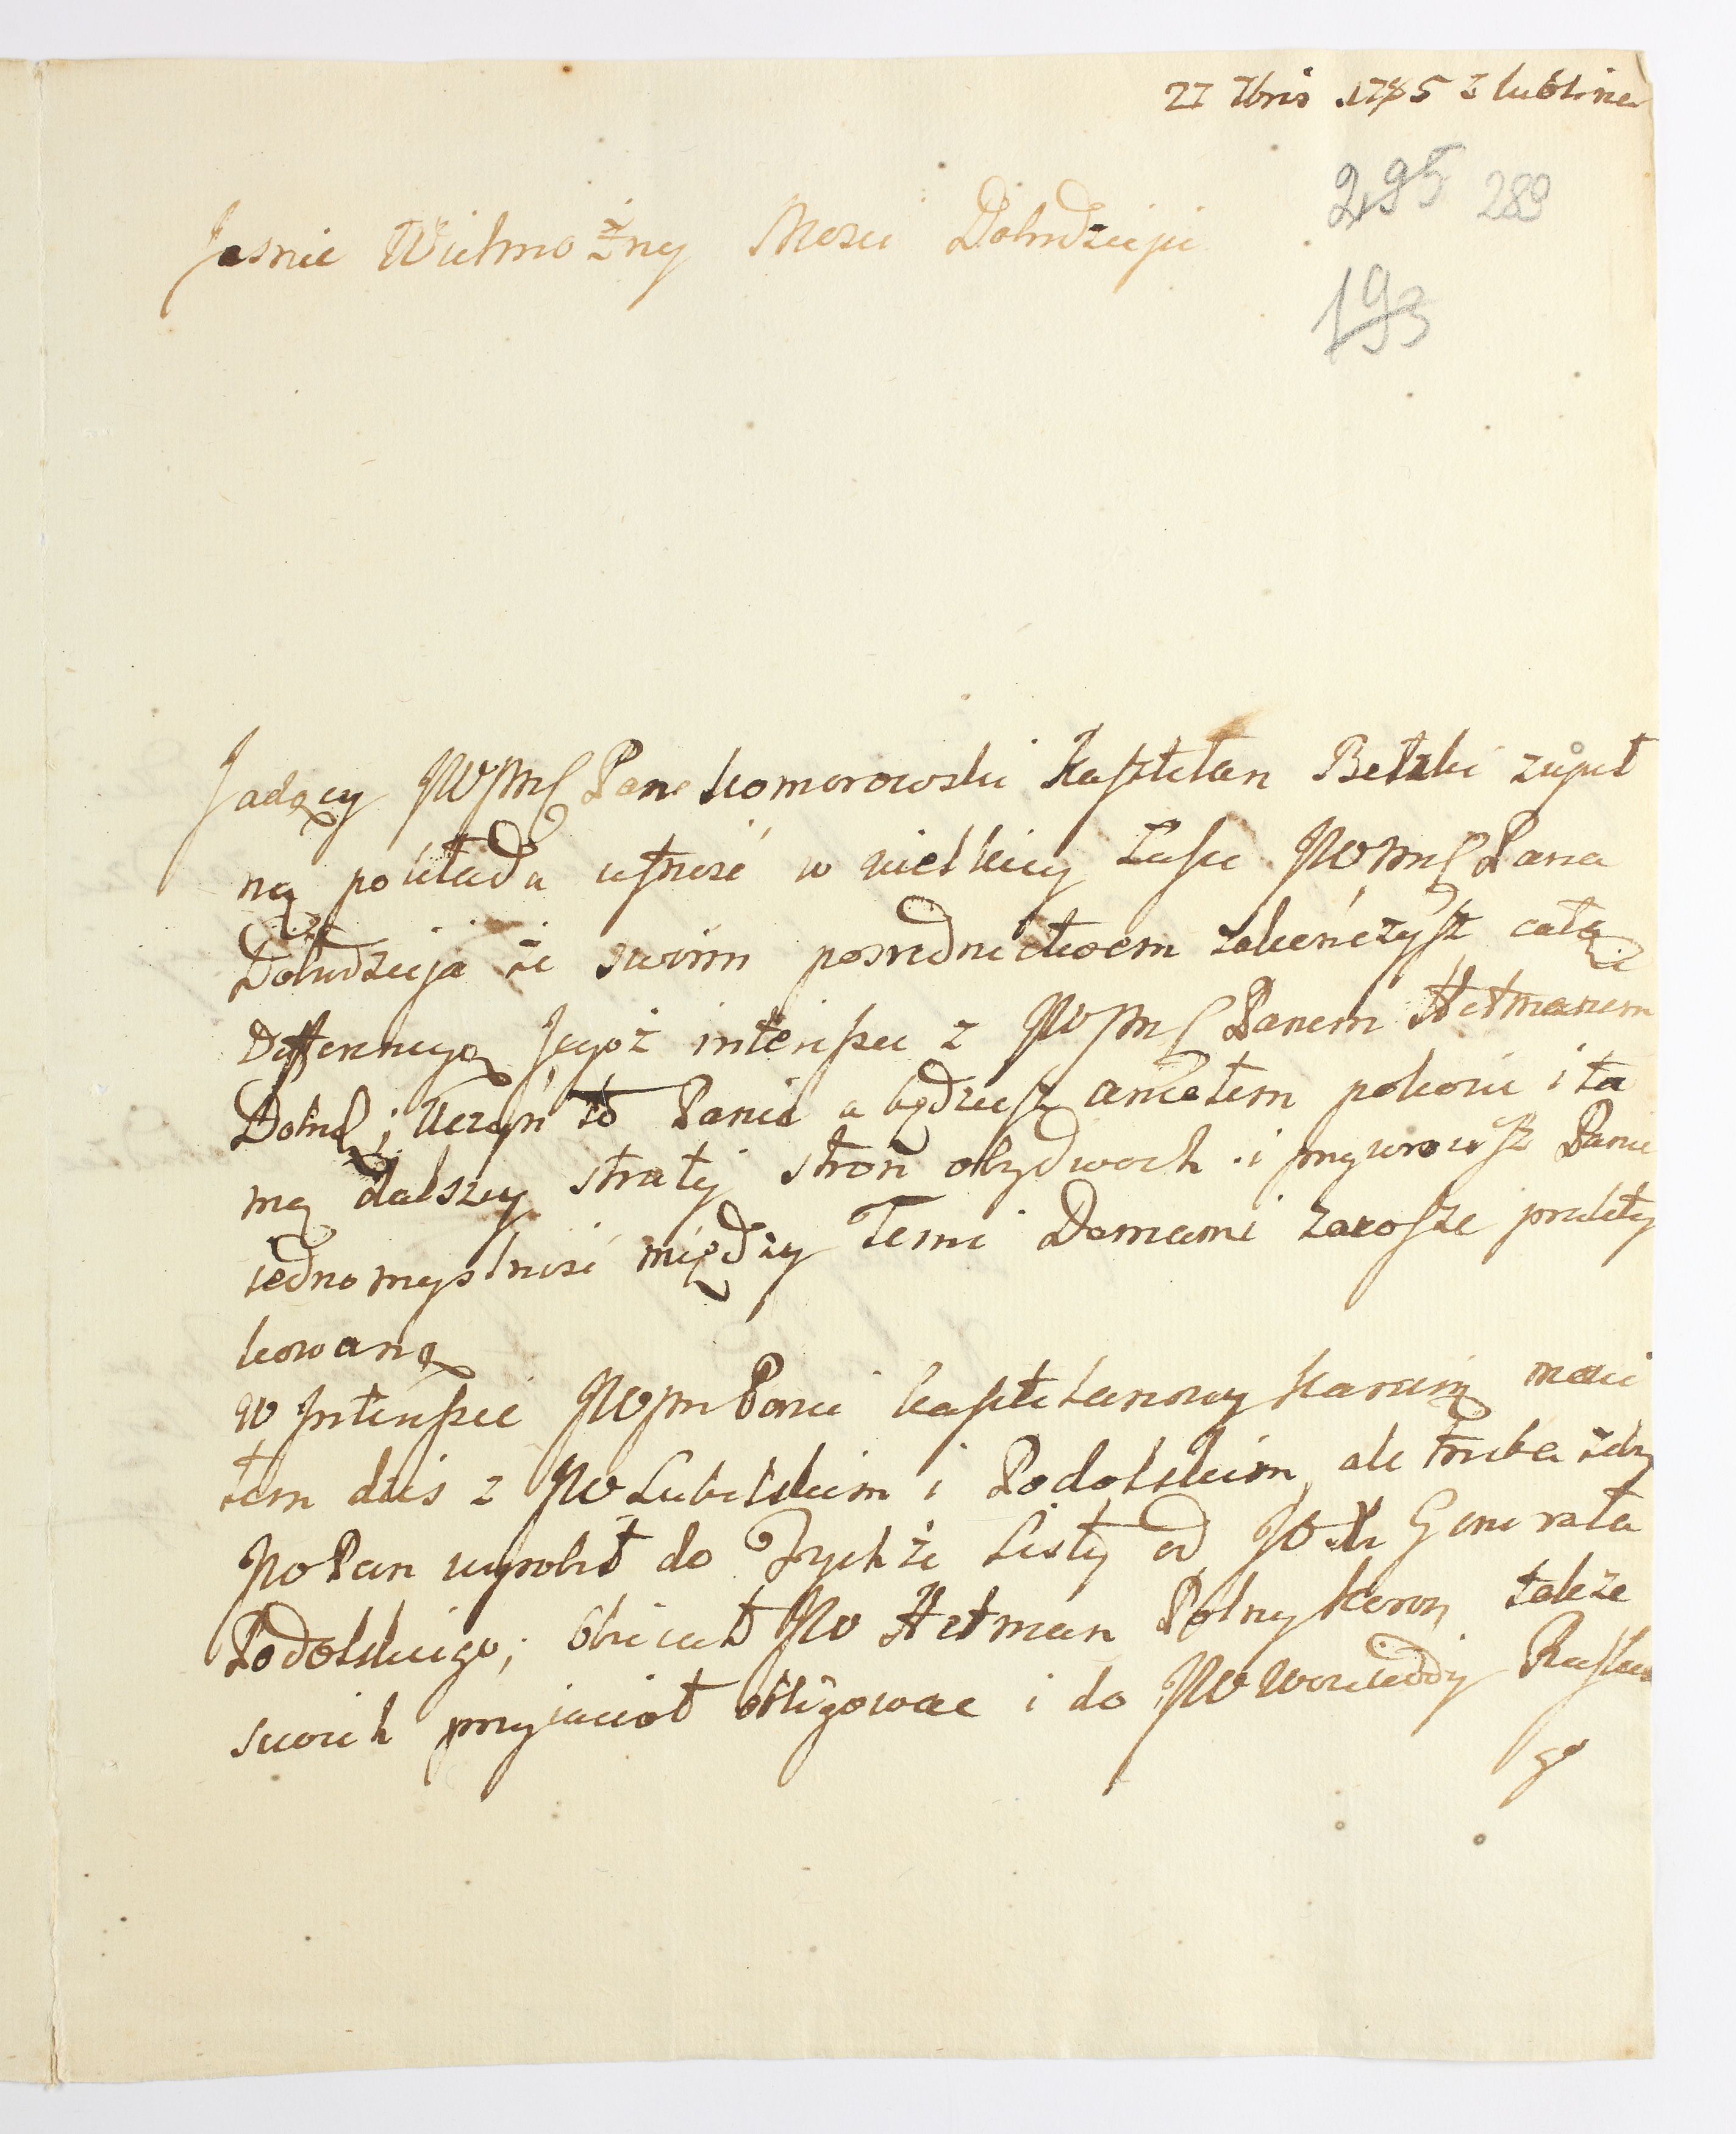 27 7bris 1785 z lublina
295 289
Jasnie Wielmożny Mosci Dobrodzieju
193
Jadący JWJMC Pan Komorowski Kasztelan Bełzki zupeł
ną pokłada ufność w wielkiey Łasce JWMC Pana
Dobrodzieja że swoim posrednictwem zakończysz całą
Differencyą Jegoż interessu z JWJMC Panem Hetmanem
Dobrd; Uczyń to Panie a będziesz aniołem pokoiu i ta
mą dalszey straty stron obydwoch i przywrocisz Panie
iednomyslność między Temi Domami zawsze prakty
kowaną
w Interssie JWJM Pani kasztelanowy Kamiń mowi
łem dziś z JW Lubelskim i Podolskim, ale trzeba żeby
JW Pan wyrobił do Tychże Listy od JW Generała
Podolskiego; obiecał JW Hetman Polny Koron także
swoich przyjaciół obligowac i do JW Woiewody Ruskie
go